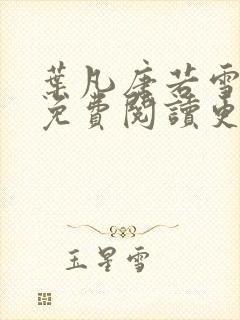 葉凡唐若雪
免費閱讀更
玉星雪